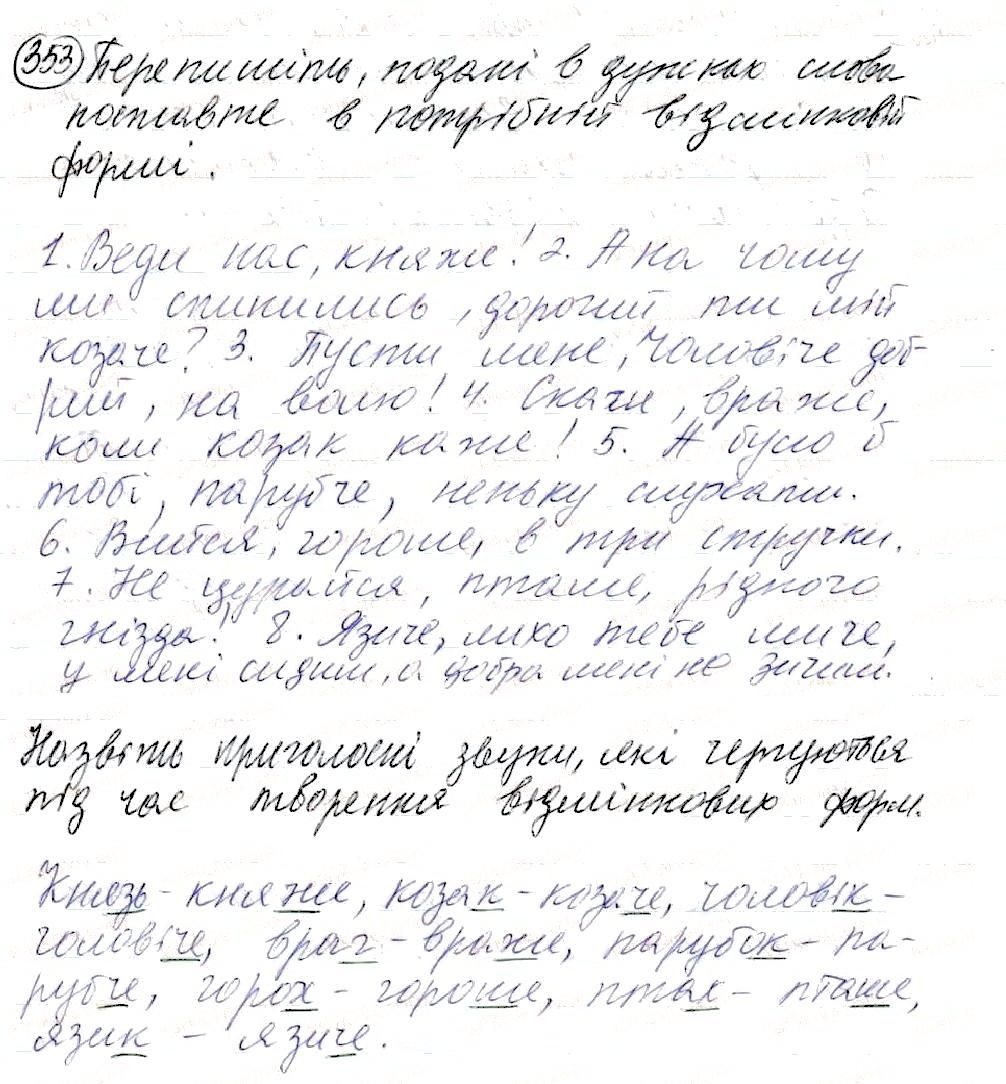 353 Перепишіть, подані в дужках слова
поставте в потрібній відмінковій
формі.
1. Веди нас, княже! 2. А на чому
ми спинились, дорогий ти мій
козаче? 3. Пусти мене, чоловіче доб-
рий, на волю! 4. Скачи, враже,
коли козак каже! 5. А було б
тобі, парубче, неньку слухати.
6. Вийтся, гороше, в три стручки.
7. Не цурайся, пташе, рідного
гнізда! 8. Язиче, лихо тебе миче,
у мені сидиш, а добра мені не зичиш.
Назвіть приголосні звуки, які чергуються
під час творення відмінкових форм.
Князь - княже, козак - козаче, чоловік -
чоловіче, враг - враже, парубок - па-
рубче, горох - гороше, птах - пташе,
язик - язиче.